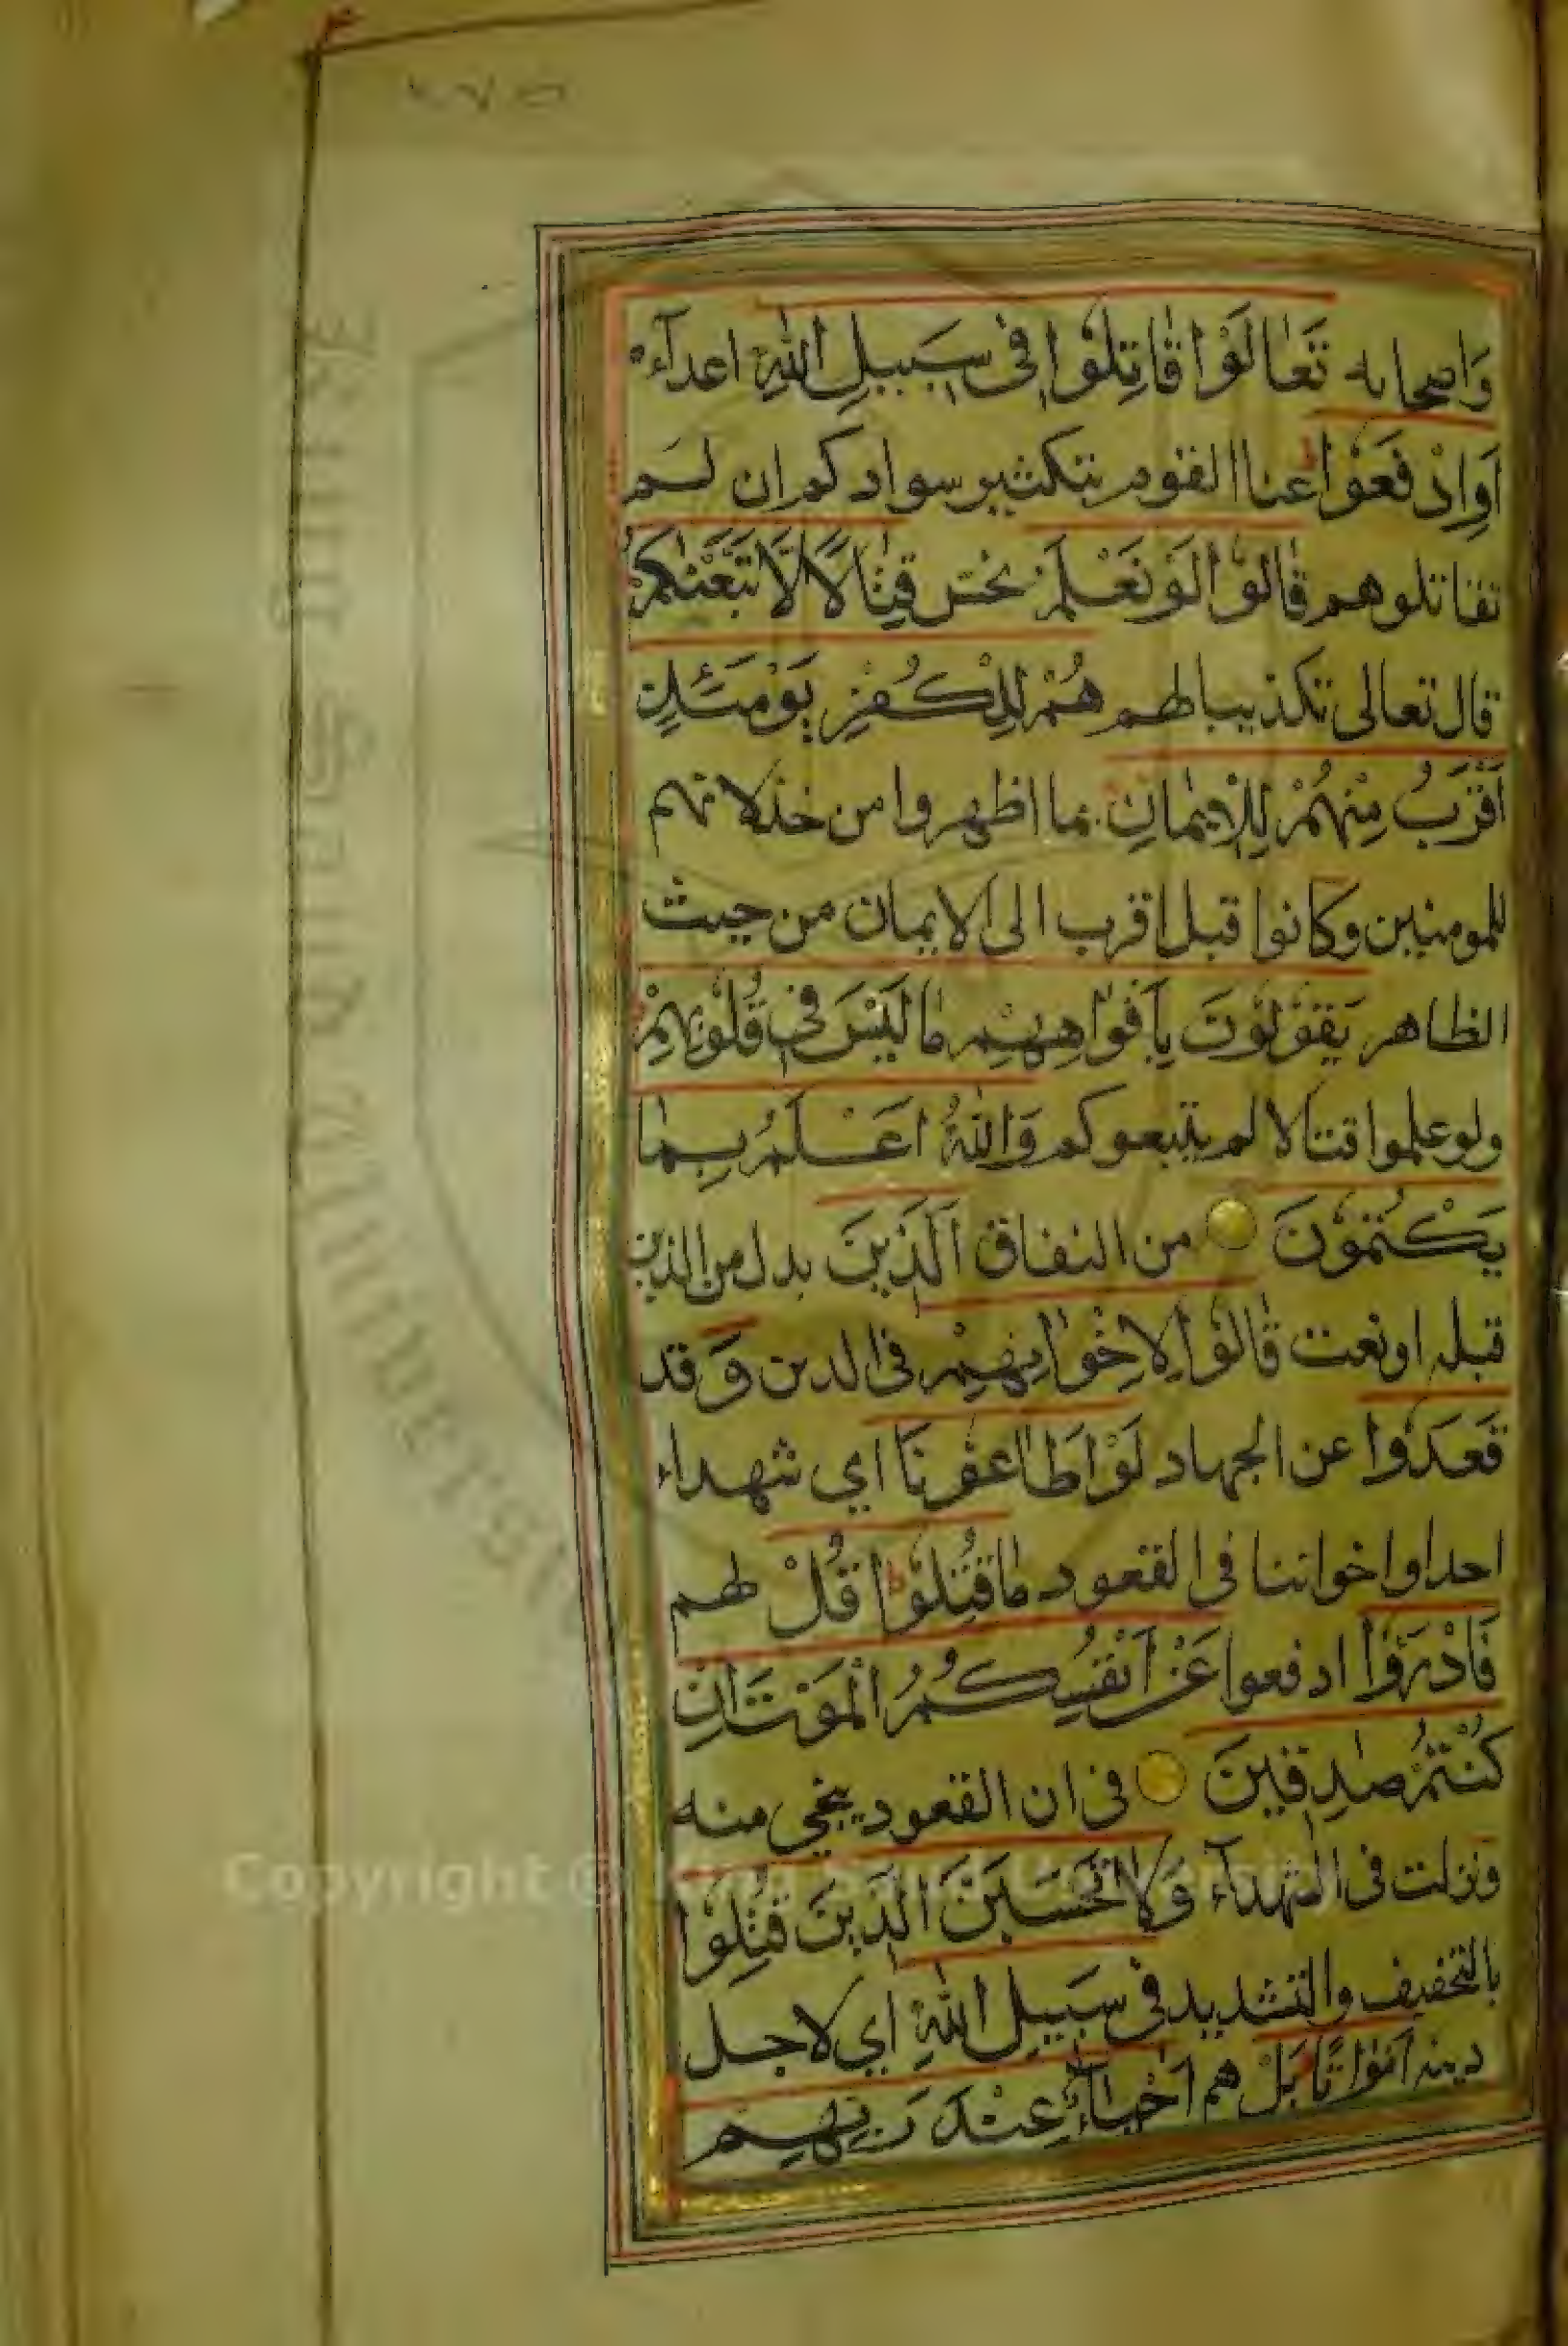 ٢٧٥
وَاصحابه تَعَالَوْا قَاتِلُوْا فِى سَبِيلِ اللّٰهِ اعدآءه
اَوِادْفَعُوْا عنا القوم بتكثير سوادكم ان لم
تقاتلوهم قَالُوْا لَوْ نَعْلَمُ نحسن قِتَالًا لَّا تَّبَعْنٰكُمْ
قال تعالى تكذيبا لهم هُمْ لِلْكُفْرِ يَوْمَئِذٍ
اَقْرَبُ مِنْهُمْ لِلْاِيْمَانِ بما اظهروا من خذلانهم
للمومنين وكانوا قبل اقرب الى الايمان من حيث
الظاهر يَقُوْلُوْنَ بِاَفْوَاهِهِمْ مَا لَيْسَ فِى قُلُوْبِهِمْ
ولو علموا قتالا لم يتبعوكم وَاللّٰهُ اَعْلَمُ بِمَا
يَكْتُمُوْنَ من النفاق اَلَّذِيْنَ بدل من الذين
قبله او نعت قَالُوْا لِاِخْوَانِهِمْ فى الدين وَ قد
قَعَدُوْا عن الجهاد لَوْ اَطَاعُوْنَا اي شهداء
احد او اخواننا فى القعود مَا قُتِلُوْا قُلْ لهم
فَادْرَؤُا ادفعوا عَنْ اَنْفُسِكُمُ الْمَوْتَ اِنْ
كُنْتُمْ صٰدِقِيْنَ فى ان القعود ينجي منه
ونزلت فى الشهدآء وَلَا تَحْسَبَنَّ الَّذِيْنَ قُتِلُوْا
بالتخفيف والتشديد فِى سَبِيْلِ اللّٰهِ اي لاجل
دينه اَمْوَاتًا بَلْ هم اَحْيَآءٌ عِنْدَ رَبِّهِمْ
King Saud University
Copyright © King Saud University